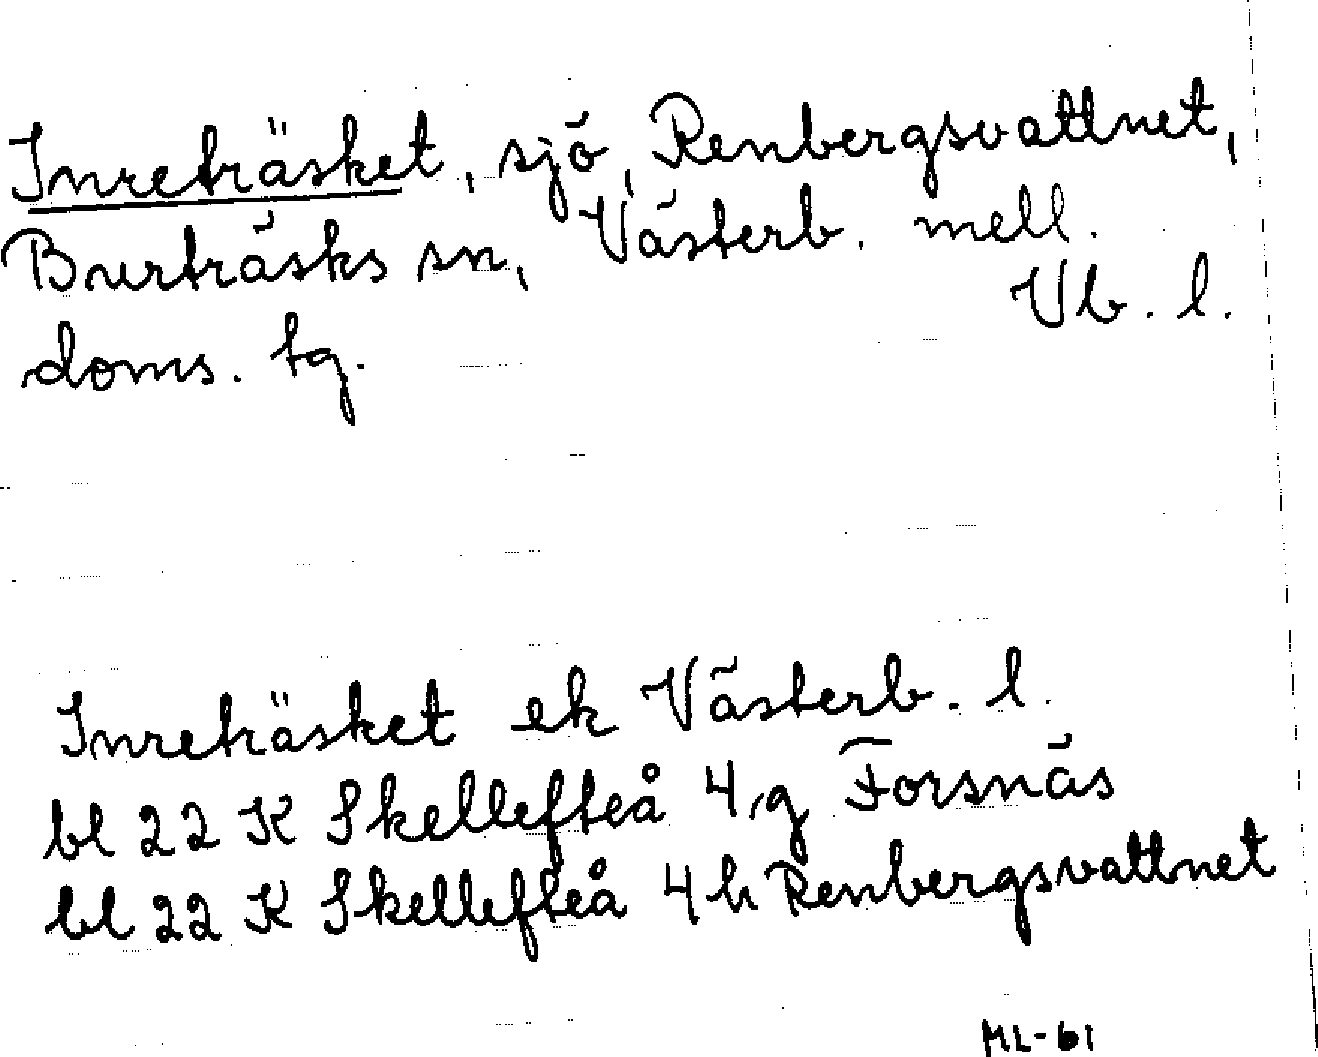 Inreträsket, sjö, Renbergsvattnet,
Burträsks sn, Västerb. mell.
doms. tg. Vb. l.
Inreträsket ek Västerb. l.
bl 22 K Skellefteå 4 g Forsnäs
bl 22 K Skellefteå 4 h Renbergsvattnet
ML-61